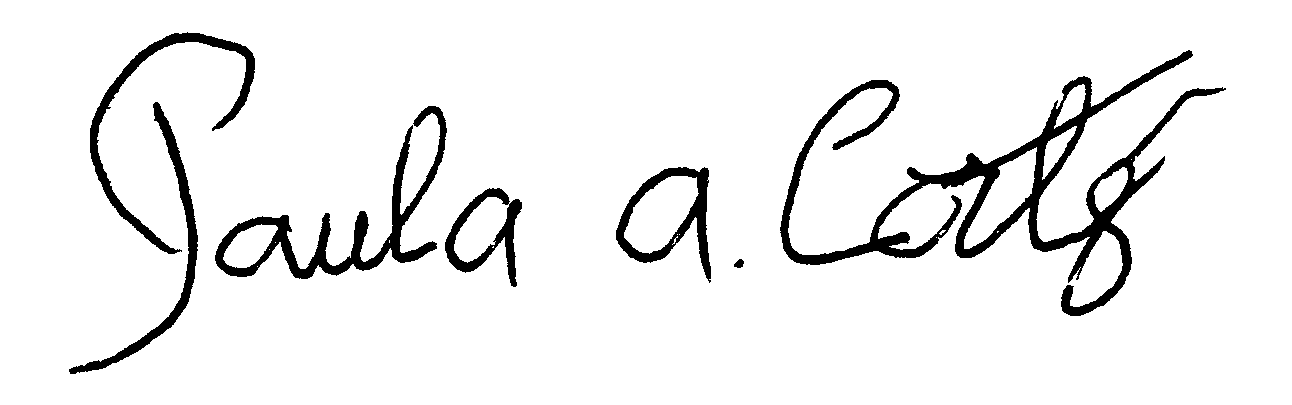 Paula A. Cortez